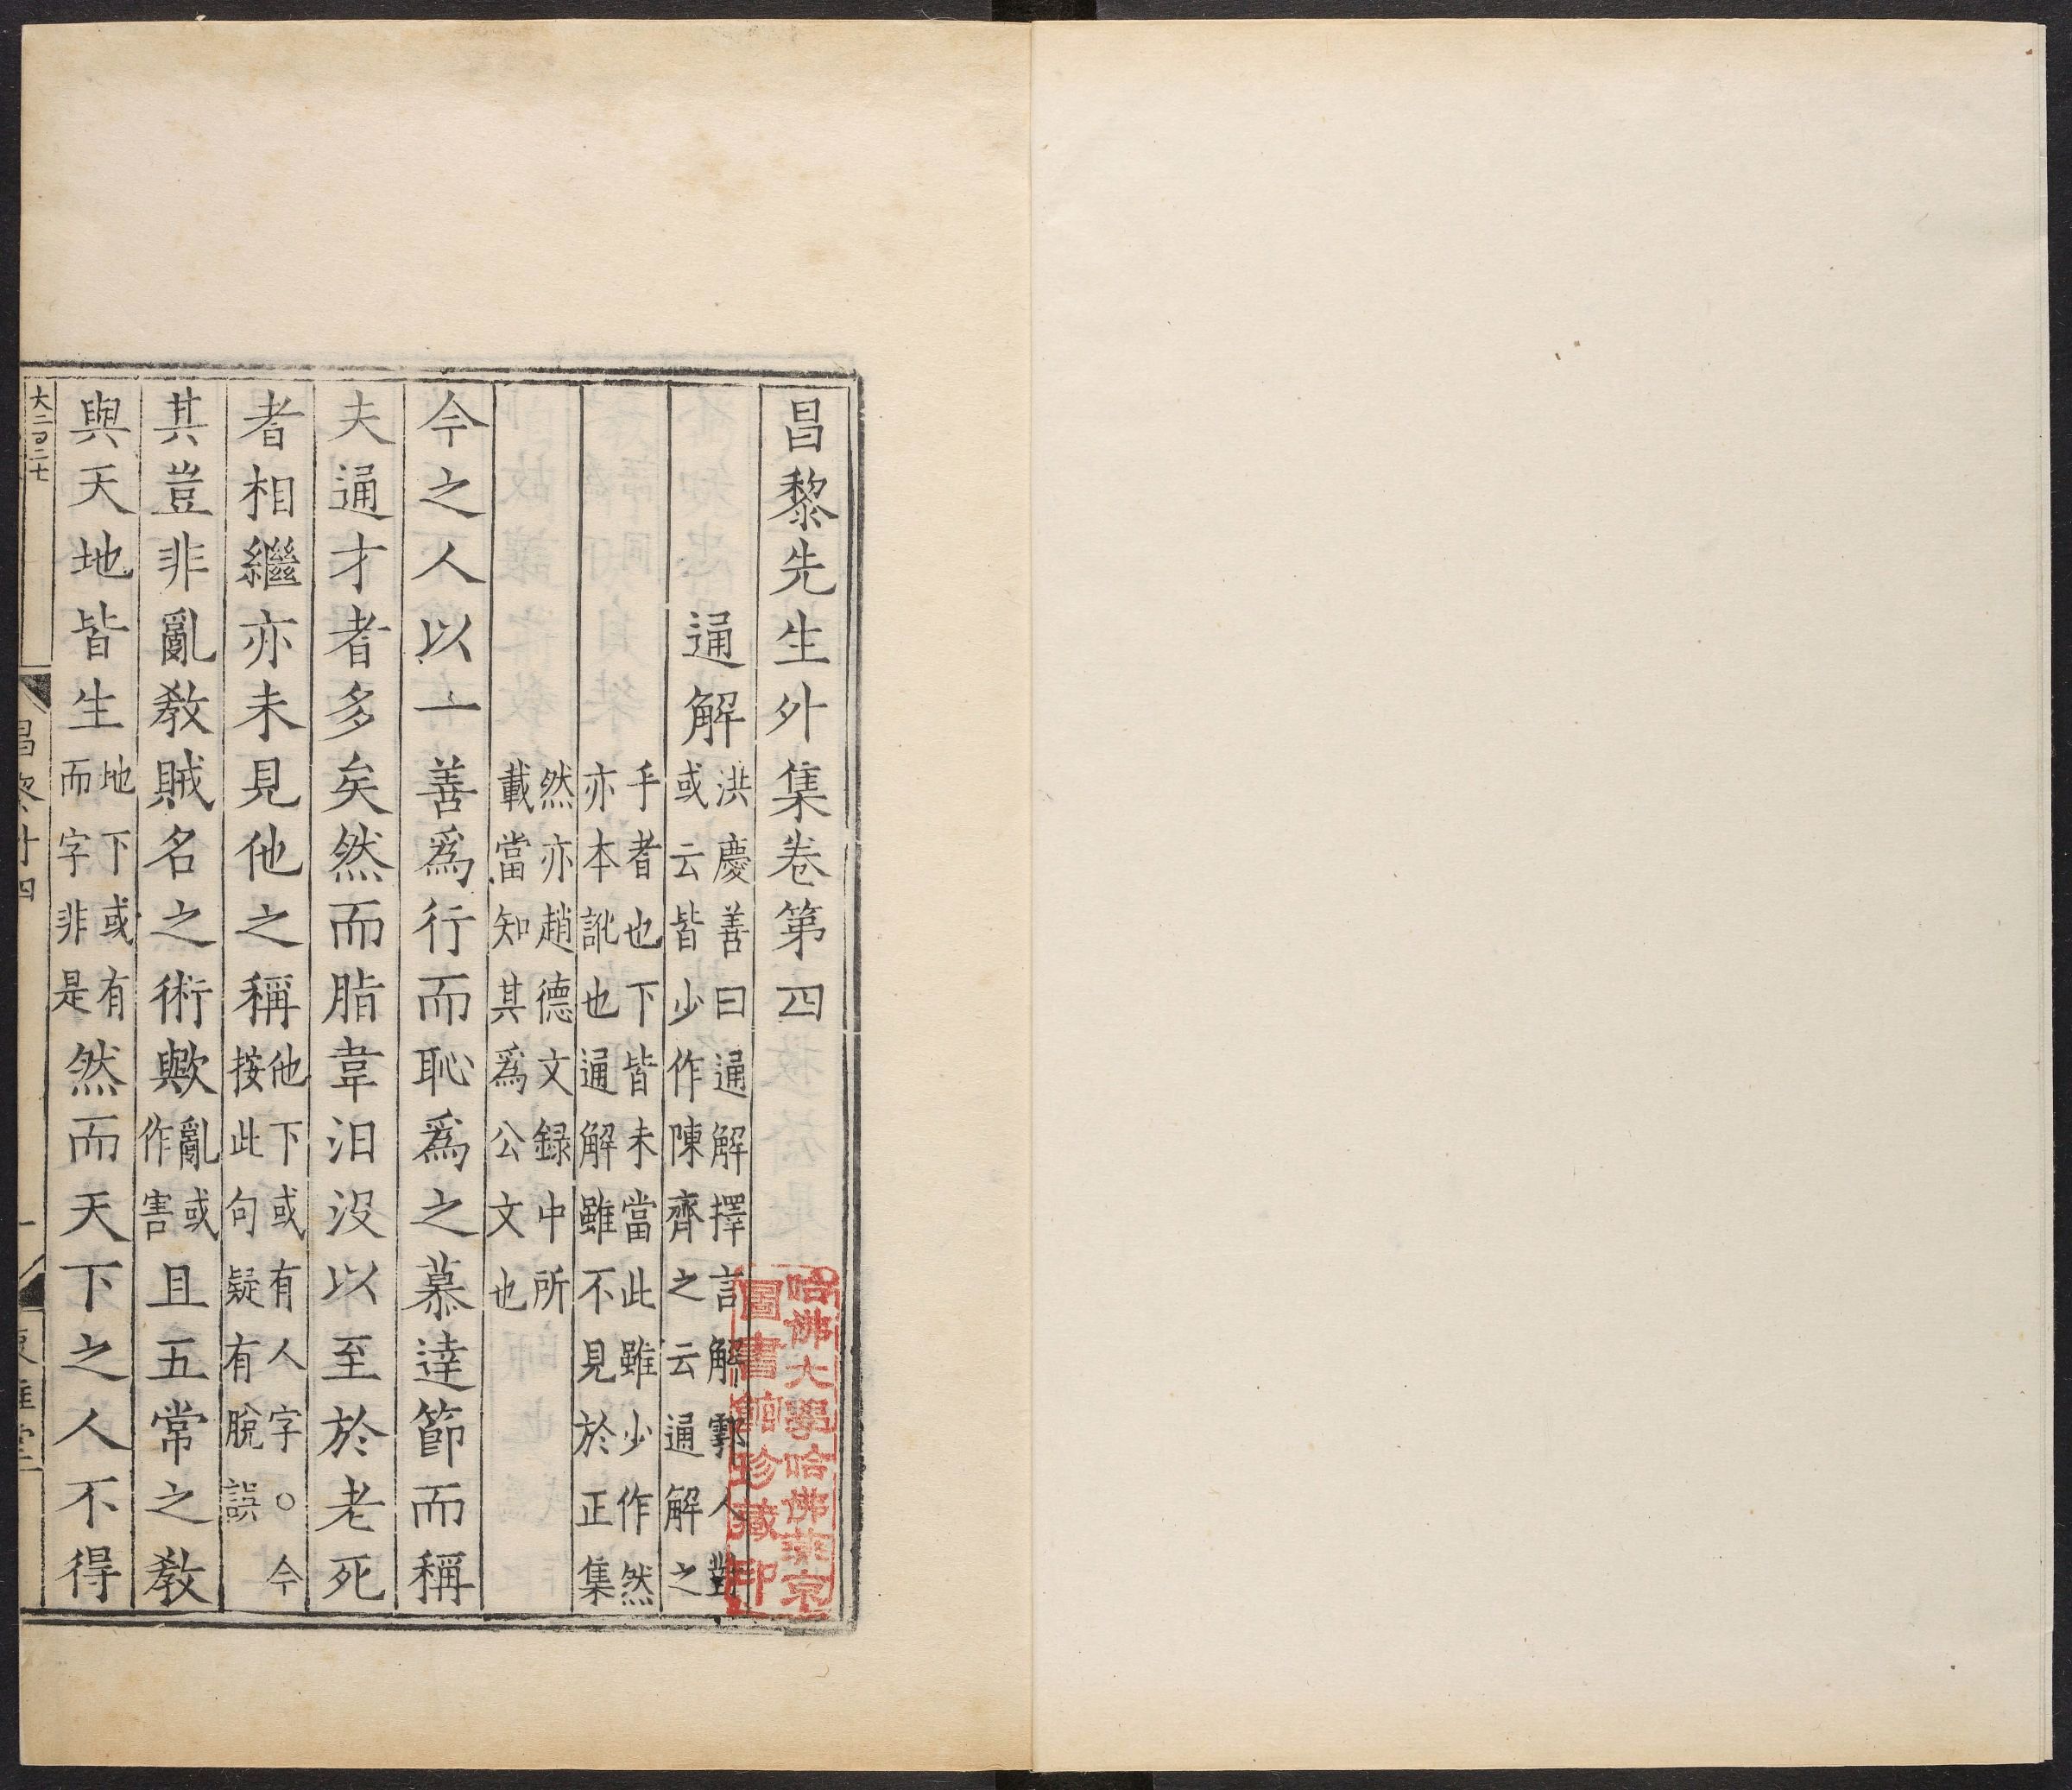 昌黎先生外集卷第四
通解
洪慶善曰通解擇言解鄠人對
或云皆少作陳齊之云通解之
乎者也下皆未當此雖少作然
亦本訛也通解雖不見於正集
然亦趙德文録中所
載當知其爲公文也
今之人以一善爲行而恥爲之慕達節而稱
夫通才者多矣然而脂韋汩没以至於老死
者相繼亦未見他之稱
他下或有人字○今
按此句疑有脫誤
其豈非亂教賊名之術歟
亂或
作害
且五常之教
與天地皆生
地下或有
而字非是
然而天下之人不得
昌黎外四
一
東雅堂
哈佛大學哈佛燕京
圖書館珍藏印